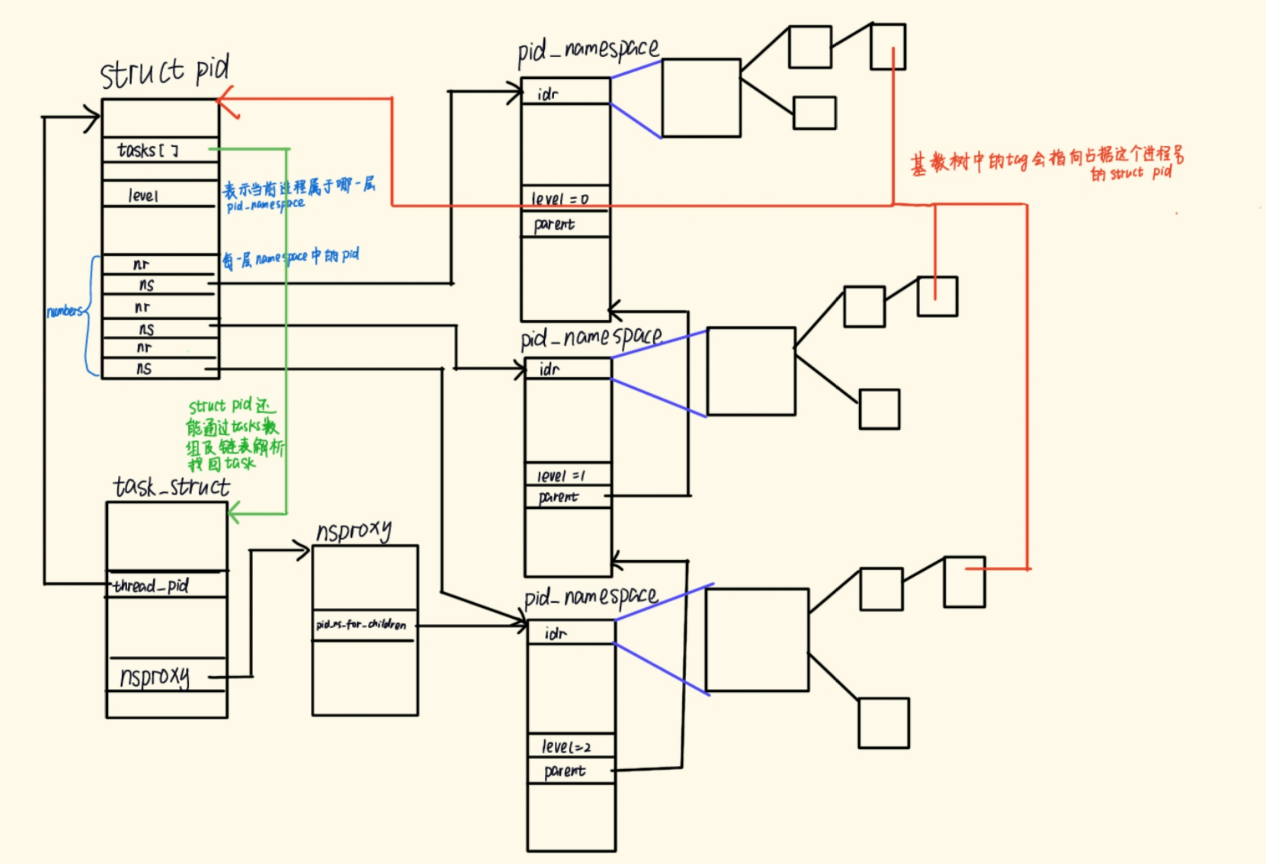 struct pid
tasks[]
level
表示当前进程属于哪一层
pid_namespace
每一层namespace中的pid
numbers
nr
ns
nr
ns
nr
ns
struct pid 还
能通过tasks数
组及链表解析
找回task
task_struct
thread_pid
nsproxy
nsproxy
pid_ns_for_children
pid_namespace
idr
level = 0
parent
pid_namespace
idr
level =1
parent
pid_namespace
idr
level=2
parent
基数树中的tag会指向占据这个进程号
的struct pid